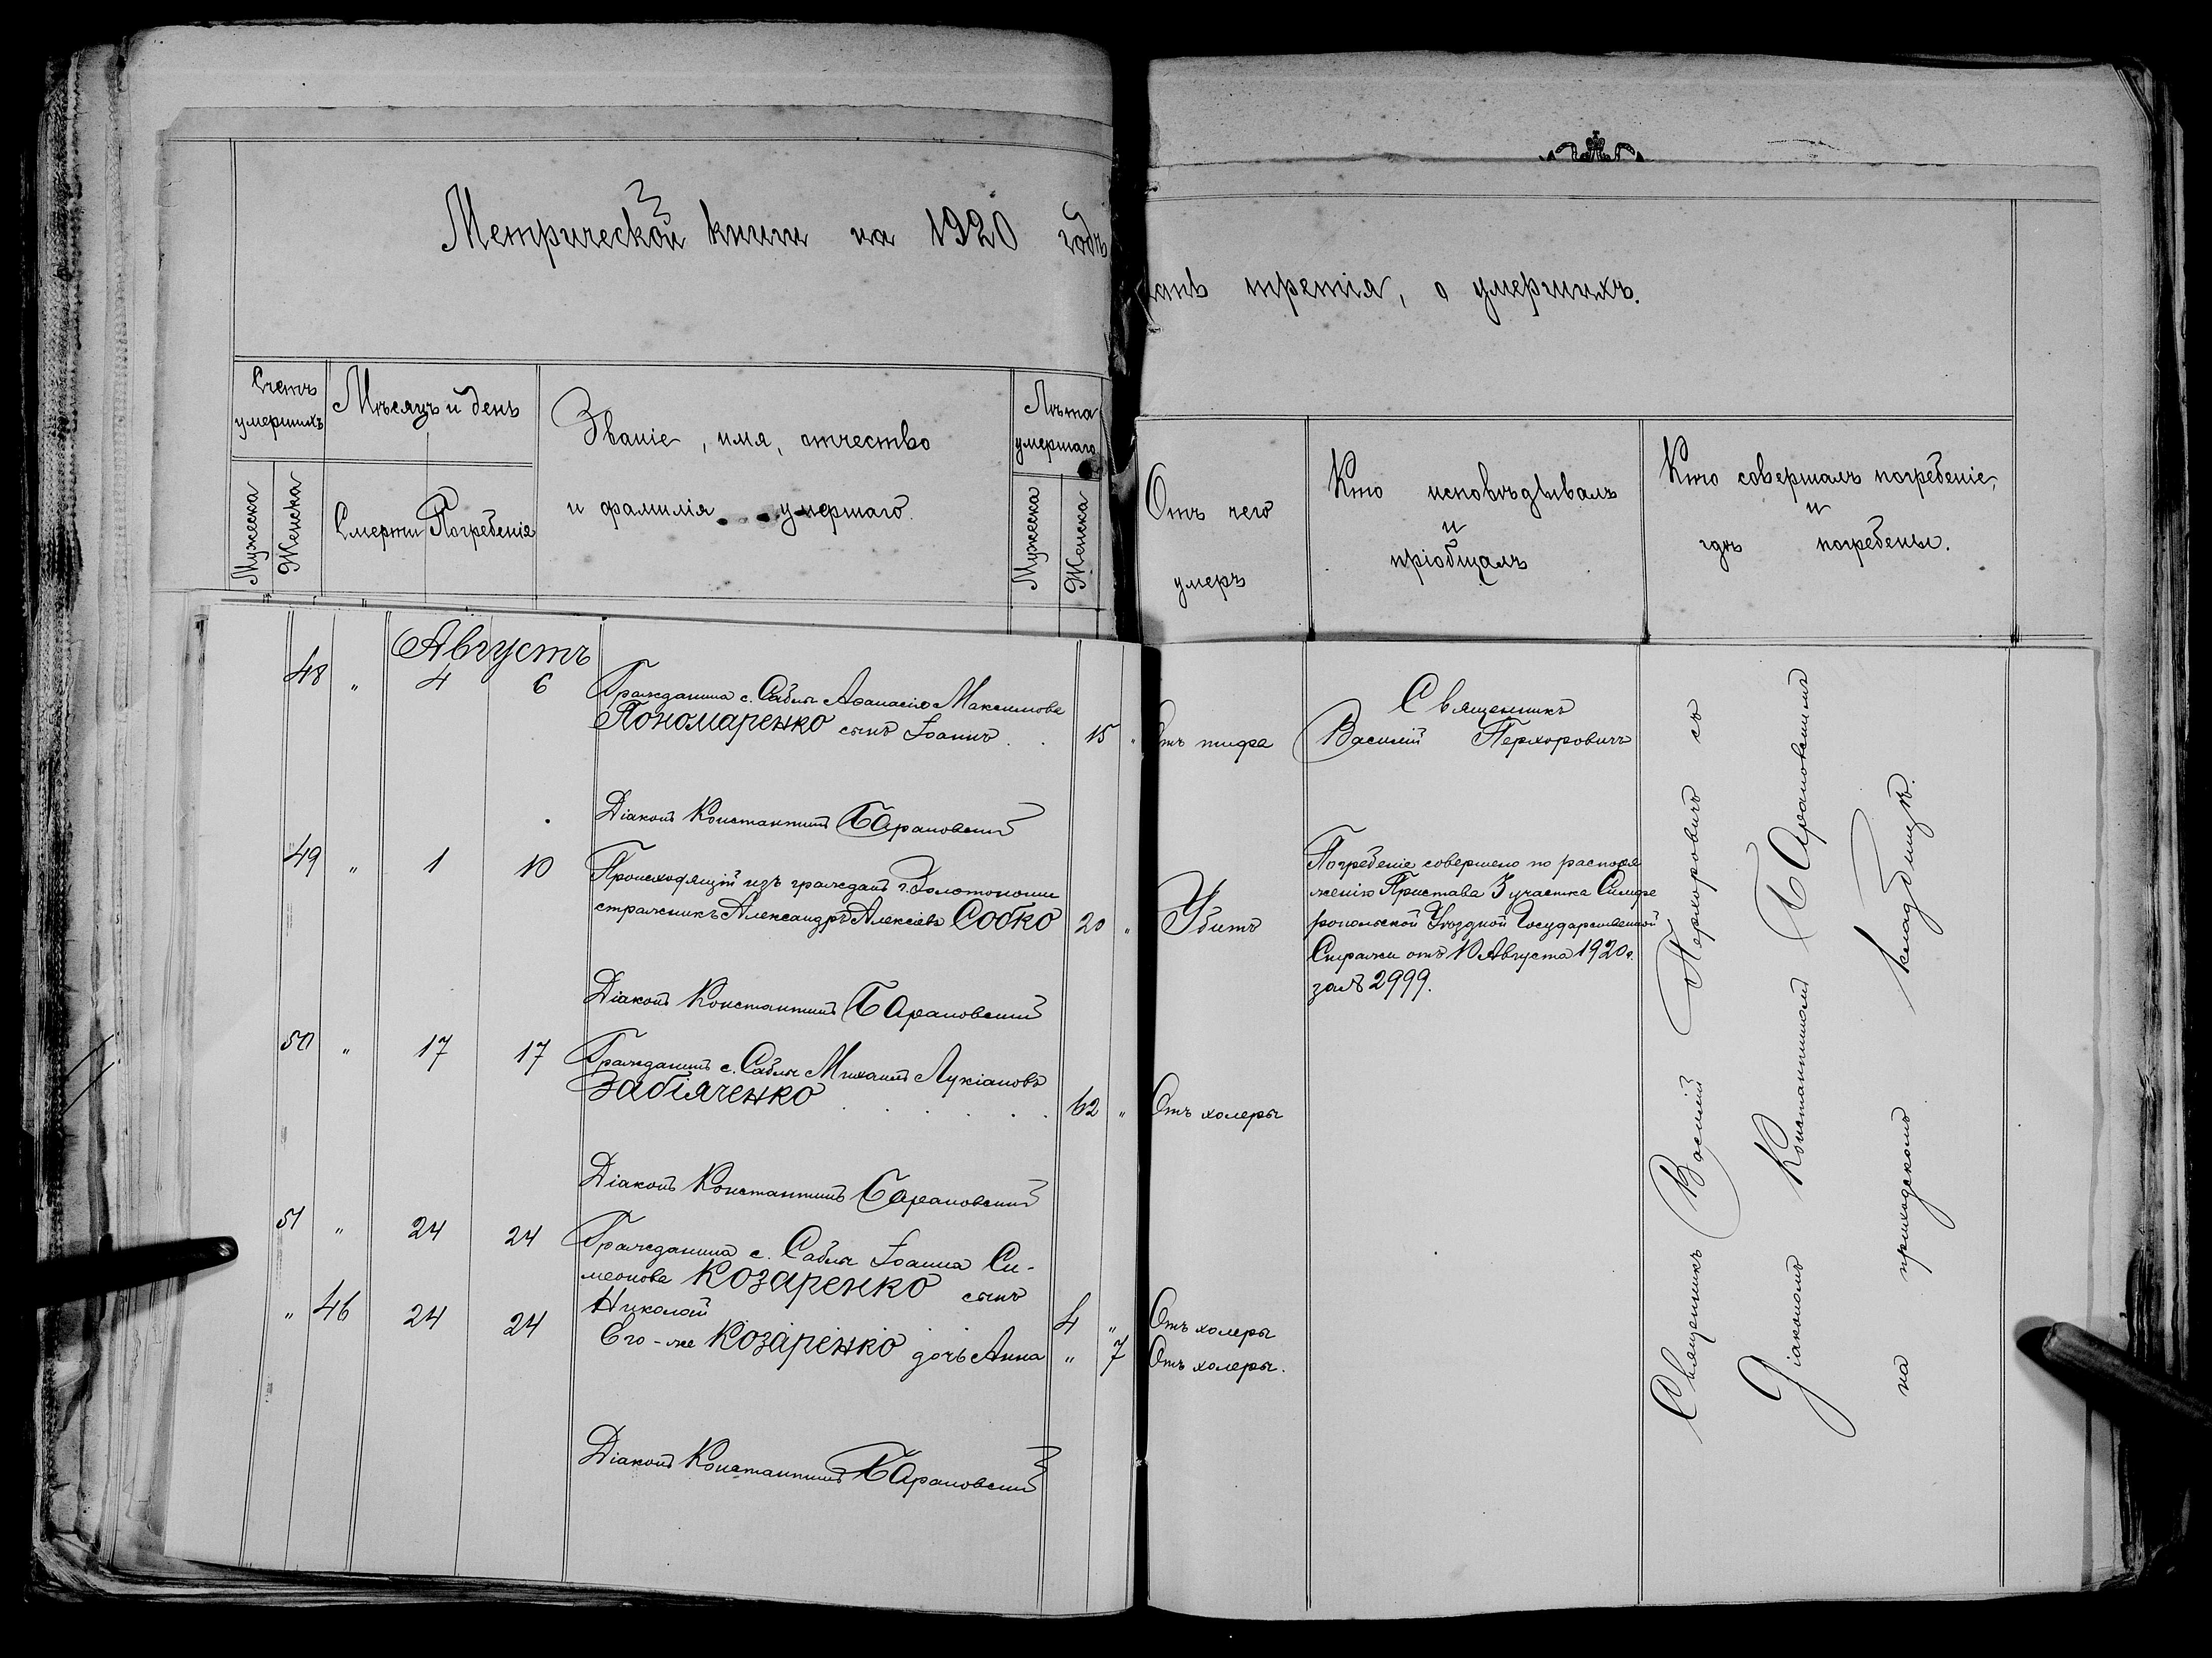 Метрической книги на 1920 годъ
часть третія, о умершихъ.
Счетъ умершихъ
Мужеска
Женска
Мѣсяцъ и день
Смерти
Погребенія
Званіе, имя, отчество
и фамилія умершаго.
Лѣта умершаго
Мужеска
Женска
Отъ чего
умеръ
Кто исповѣдывалъ
и
пріобщалъ
Кто совершалъ погребеніе,
и
гдѣ погребены.
Августъ
48 " 4 6 Гражданина с. Саблы Аѳанасія Максимова
Пономаренко сынъ Іоаннъ . . 15 " Отъ тифа
Священникъ
Василій Перхоровичъ
Діаконъ Константинъ Барановскій
49 " 1 10 Происходящій изъ гражданъ г. Золотоноши
стражникъ Александръ Алексіевъ Собко 20 " Убитъ
Погребеніе совершено по распоря
женію Пристава 3 участка Симфе
ропольской Уѣздной Государственной
Стражи отъ 10 Августа 1920 г.
за № 2999.
Діаконъ Константинъ Барановскій
50 " 17 17 Гражданинъ с. Саблы Михаилъ Лукіановъ
Забіяченко . . . . . . 62 " Отъ холеры
Діаконъ Константинъ Барановскій
51 " 24 24 Гражданина с. Саблы Іоанна Си-
меонова Козаренко сынъ
Николай 4 " Отъ холеры
" 46 24 24 Его-же Козаренко дочь Анна " 7 Отъ холеры.
Діаконъ Константинъ Барановскій
Священникъ Василій Перхоровичъ съ
Діакономъ Константиномъ Барановскимъ
на приходскомъ кладбищѣ.